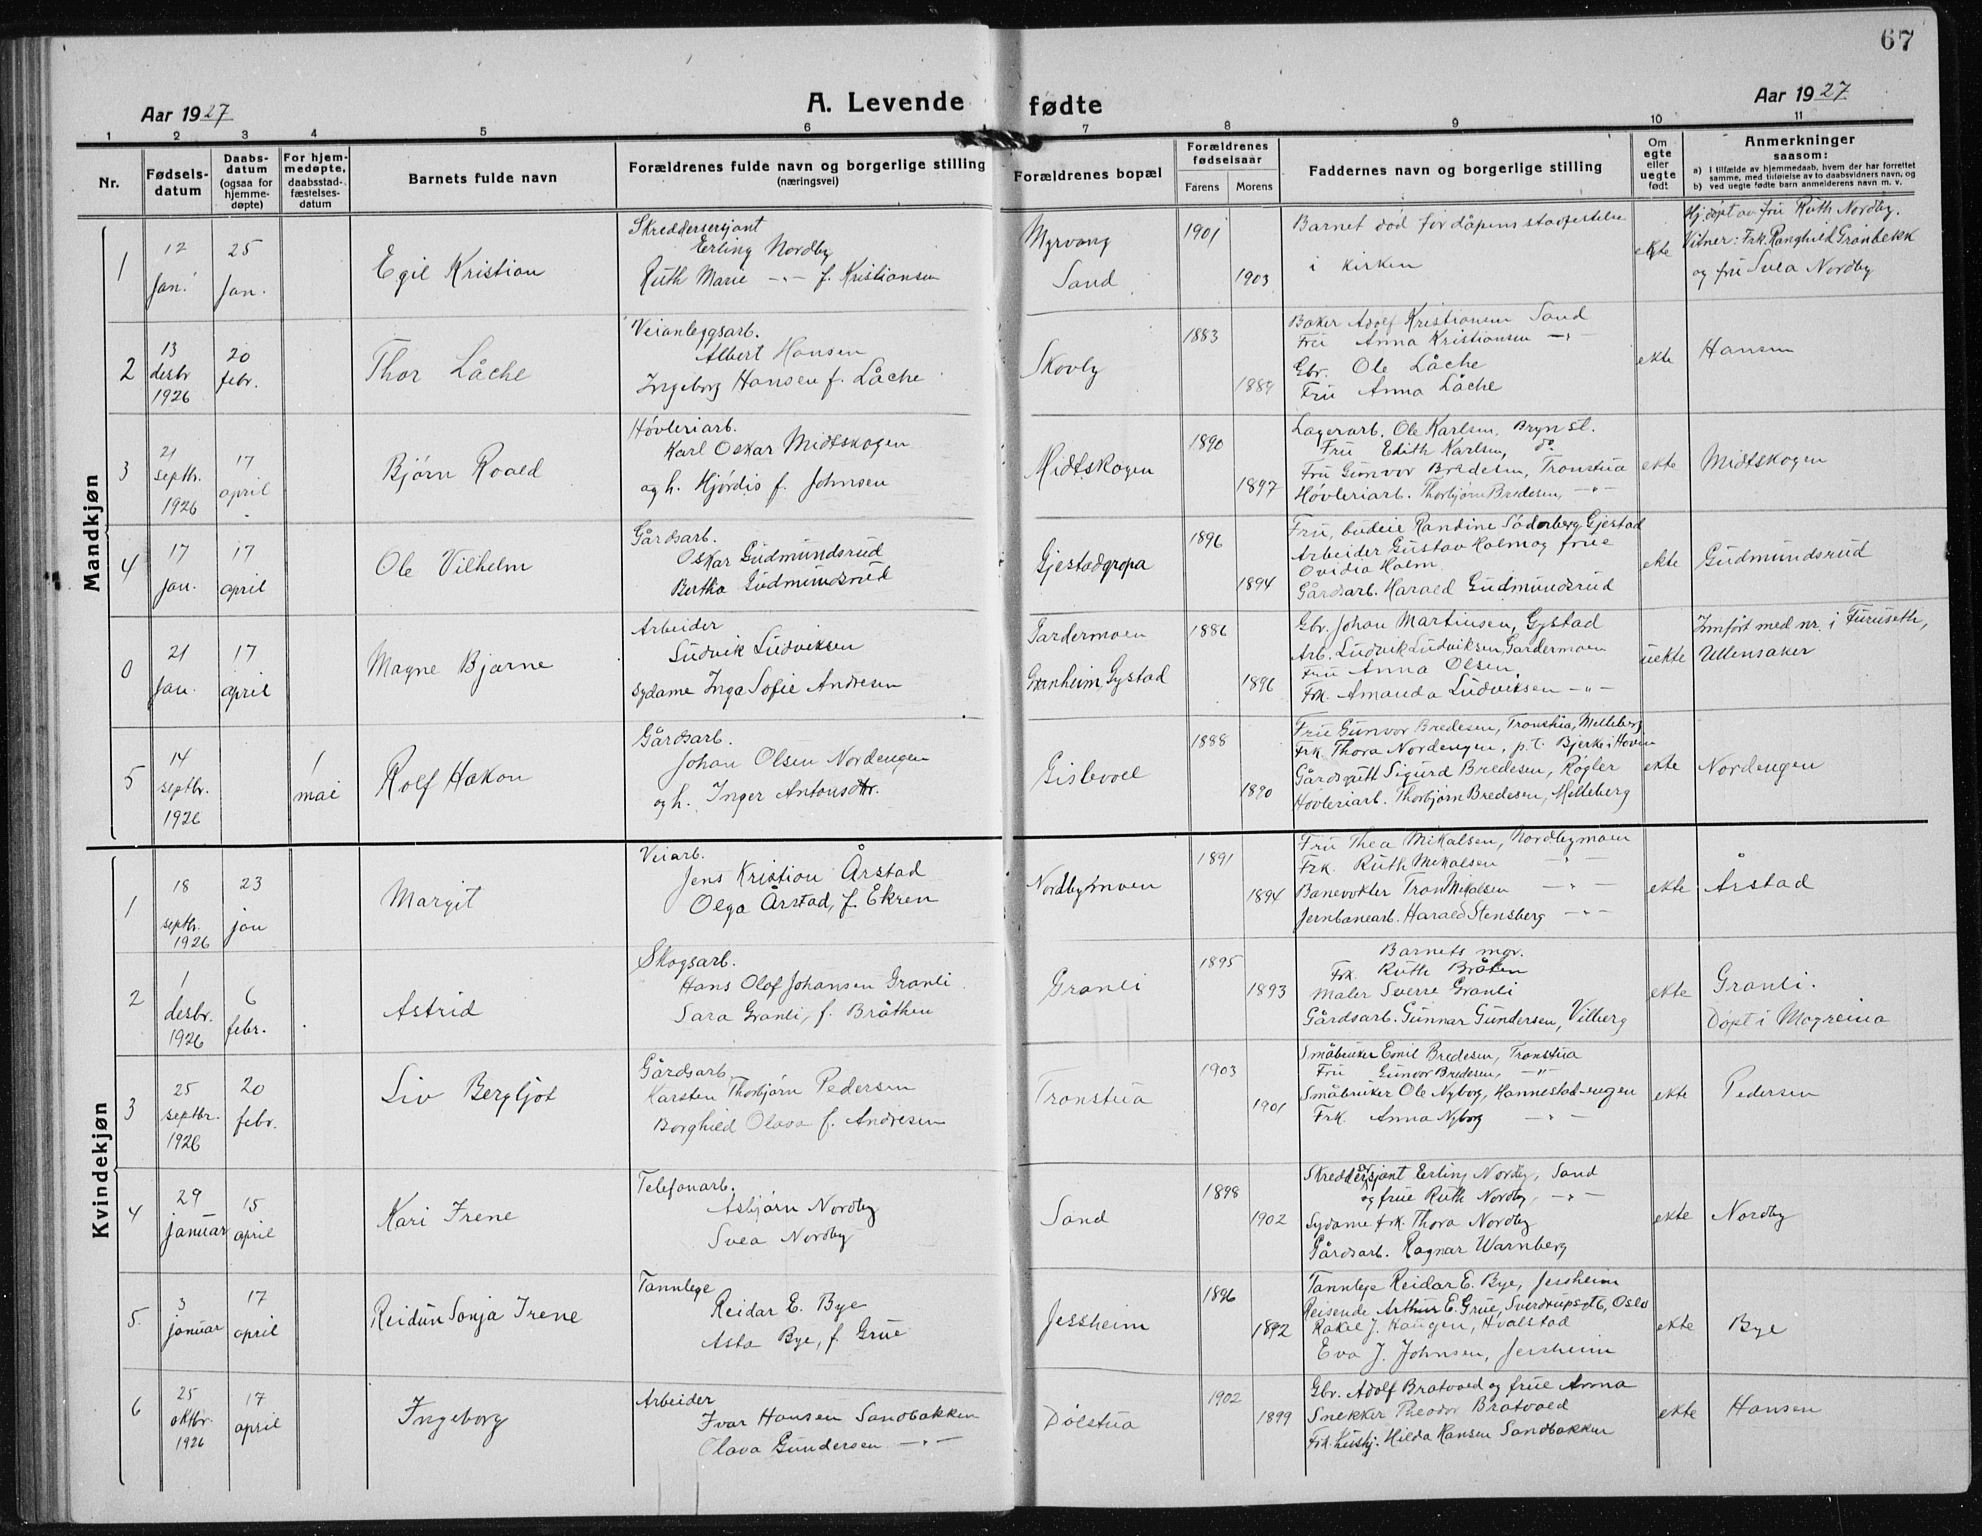 67
Aar 1927
A. Levende fødte
Aar 1927
1 2 3 4 5 6 7 8 9 10 11
Nr.
Fødsels-
datum
Daabs-
datum
(ogsaa for
hjemme-
døpte)
For hjem-
medøpte,
daabsstad-
fæstelses-
datum
Barnets fulde navn
Forældrenes fulde navn og borgerlige stilling
(næringsvei)
Forældrenes bopæl
Forældrenes
fødselsaar
Farens
Morens
Faddernes navn og borgerlige stilling
Om
egte
eller
uegte
født
Anmerkninger
saasom:
a) I tilfælde av hjemmedaab, hvem der har forrettet
samme, med tilføielse av to daabsvidners navn, og
b) ved uegte fødte barn anmelderens navn m. v.
Mandkjøn
1
12
jan.
25
jan.
Egil Kristian
Skreddersersjant
Erling Nordby
Ruth Marie -"- f. Kristiansen
Myrvang
Sand
1901
1903
Barnet død før dåpens stadfestelse
i kirken
ekte
Hj.døpt av fru Ruth Nordby.
Vitner: Frk. Ranghild Grønbekk
og fru Svea Nordby
2
13
desbr
1926
20
febr.
Thor Låche
Veianleggsarb.
Albert Hansen
Ingeborg Hansen f. Låche
Skovly
1883
1884
Baker Adolf Kristiansen Sand
Fru Anna Kristiansen -"-
Gbr. Ole Låche
Fru Anna Låche
ekte
Hansen
3
21
septbr.
1926
17
april
Bjørn Roald
Høvleriarb.
Karl Oskar Midtskogen
og h. Hjørdis f. Johnsen
Midtskogen
1890
1897
Lagerarb. Ole Karlsen, Bryn st.
Fru Edith Karlsen, do
Fru Gunvor Bredesen, Tronstua
Høvleriarb. Thorbjørn Bredesen, -"-
ekte
Midtskogen
4
17
jan.
17
april
Ole Vilhelm
Gårdsarb.
Oskar Gudmundsrud
Bertha Gudmundsrud
Gjestadgropa
1896
1894
Fru, budeie Randine Söderberg, Gjestad
Arbeider Gustav Holm og frue
Ovidia Holm
Gårdsarb. Harald Gudmundsrud
ekte
Gudmundsrud
0
21
jan.
17
april
Magne Bjarne
Arbeider
Ludvik Ludviksen
sydame Inga Sofie Andresen
Gardermoen
Granheim, Gystad
1886
1896
Gbr. Johan Martinsen, Gystad
Arb. Ludvik Ludviksen, Gardermoen
Fru Anna Olsen
Frk. Amanda Ludviksen -"-
uekte
Innført med nr. i Furuseth,
Ullensaker
5
14
septbr.
1926
1
mai
Rolf Hakon
Gårdsarb.
Johan Olsen Nordengen
og h. Inger Antonsdtr.
Gislevoll
1888
1890
Fru Gunvor Bredesen, Tronstua, Melleberg
Frk. Thora Nordengen, p.t. Bjerke i Hovin
Gårdsgutt Sigurd Bredesen, Røgler
Høvleriarb. Thorbjørn Bredesen, Melleberg
ekte
Nordengen
Kvindekjøn
1
18
septbr.
1926
23
jan
Margit
Veiarb.
Jens Kristian Årstad
Olga Årstad, f. Ekren
Nordbymoen
1891
1894
Fru Thea Mikalsen, Nordbymoen
Frk. Ruth Mikalsen -"-
Banevokter Tron Mikalsen -"-
Jernbanearb. Harald Stensberg -"-
ekte
Årstad
2
1
desbr.
1926
6
febr.
Astrid
Skogsarb.
Hans Olof Johansen Granli
Sara Granli, f. Bråthen
Granli
1895
1893
Barnets mor.
Frk. Ruth Bråten
Maler Sverre Granli
Gårdsarb. Gunnar Gundersen, Vilberg
ekte
Granli.
Døpt i Mogreina
3
25
septbr.
1926
20
febr.
Liv Bergljot
Gårdsarb
Karsten Thorbjørn Pedersen
Borghild Olava f. Andresen
Tronstua
1903
1901
Småbruker Emil Bredesen, Tronstua
Fru Gunvor Bredesen, -"-
Småbruker Ole Nyborg, Hannestad-engen
Frk. Anna Nyborg -"-
ekte
Pedersen
4
29
januar
15
april
Kari Irene
Telefonarb.
Asbjørn Nordby
Svea Nordby
Sand
1898
1902
Skreddersersjant Erling Nordby, Sand
og frue Ruth Nordby, -"-
Sydame frk. Thora Nordby
Gårdsarb. Ragnar Warnberg
ekte
Nordby
5.
3
januar
17
april
Reidun Sonja Irene
Tannlege
Reidar E. Bye
Asta Bye, f. Grue
Jessheim
1896
1892
Tannlege Reidar E. Bye, Jessheim
Reisende Arthur E. Grue, Sverdrupsgt., Oslo
Rakel J. Haugen, Hvalstad
Eva J. Johnsen, Jessheim
ekte
Bye
6
25
oktbr.
1926
17
april
Ingeborg
Arbeider
Ivar Hansen Sandbakken
Olava Gundersen -"-
Dølstua
1902
1899
Gbr. Adolf Bratvold og frue Anna
Snekker Theodor Bratvold
Frk. hushj. Hilda Hansen Sandbakken
ekte
Hansen